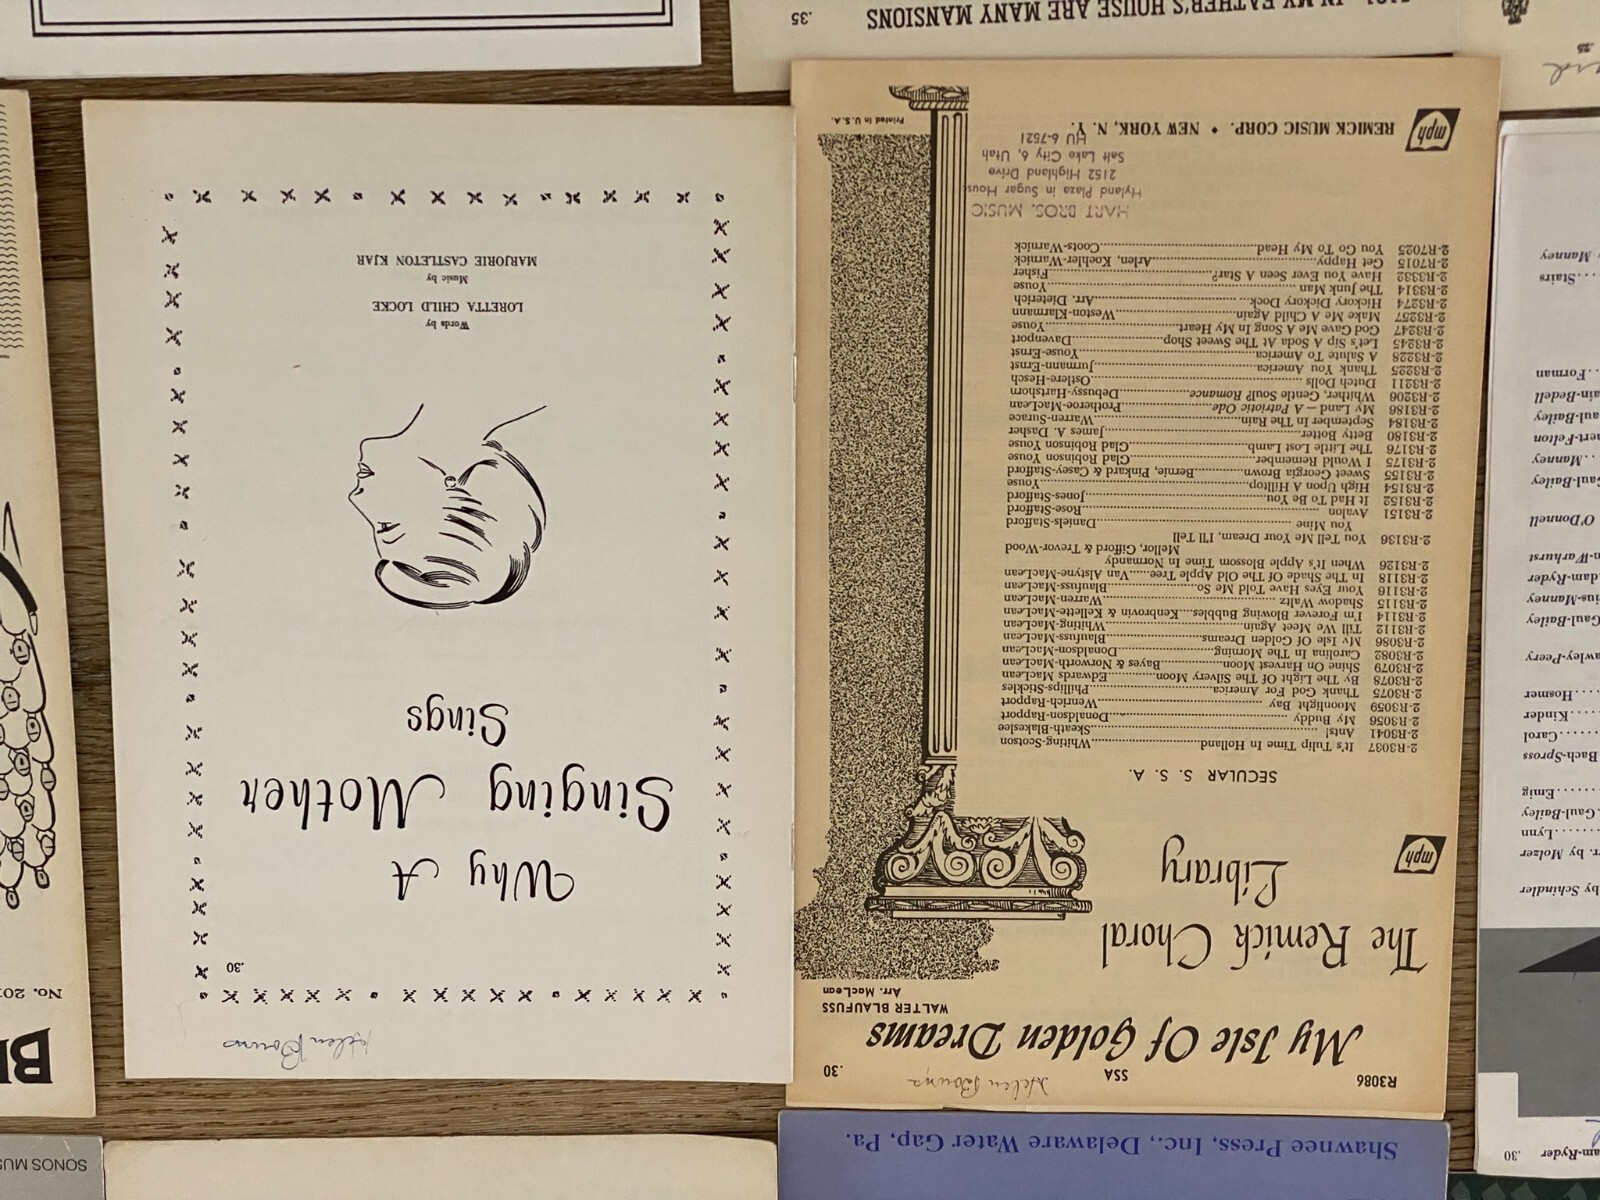 R3086 SSA Helen Bouns .30
My Isle Of Golden Dreams
WALTER BLAUFUSS
Arr. MacLean
The Remick Choral
Library
mph
SECULAR S. S. A.
2-R3037 It's Tulip Time In Holland Whiting-Scotson
2-R3041 Ants! Skeath-Blakeslee
2-R3056 My Buddy Donaldson-Rapport
2-R3059 Moonlight Bay Wenrich-Rapport
2-R3075 Thank God For America Phillips-Stickles
2-R3078 By The Light Of The Silvery Moon Edwards MacLean
2-R3079 Shine On Harvest Moon Bayes & Norworth-MacLean
2-R3082 Carolina In The Morning Donaldson-MacLean
2-R3086 My Isle Of Golden Dreams Blaufuss-MacLean
2-R3112 Till We Meet Again Whiting-MacLean
2-R3114 I'm Forever Blowing Bubbles Kenbrovin & Kellette-MacLean
2-R3115 Shadow Waltz Warren-MacLean
2-R3116 Your Eyes Have Told Me So Blaufuss-MacLean
2-R3118 In The Shade Of The Old Apple Tree Van Alstyne-MacLean
2-R3126 When It's Apple Blossom Time In Normandy
Mellor, Gifford & Trevor-Wood
2-R3136 You Tell Me Your Dream, I'll Tell
You Mine Daniels-Stafford
2-R3151 Avalon Rose-Stafford
2-R3152 It Had To Be You Jones-Stafford
2-R3154 High Upon A Hilltop Youse
2-R3155 Sweet Georgia Brown Bernie, Pinkard & Casey-Stafford
2-R3175 I Would Remember Glad Robinson Youse
2-R3176 The Little Lost Lamb Glad Robinson Youse
2-R3180 Betty Botter James A. Dasher
2-R3184 September In The Rain Warren-Surace
2-R3186 My Land – A Patriotic Ode Protheroe-MacLean
2-R3206 Whither, Gentle Soul? Romance Debussy-Hartshorn
2-R3211 Dutch Dolls Ostlere-Hesch
2-R3225 Thank You America Jurmann-Ernst
2-R3228 A Salute To America Youse-Ernst
2-R3245 Let's Sip A Soda At The Sweet Shop Davenport
2-R3247 God Gave Me A Song In My Heart Youse
2-R3257 Make Me A Child Again Weston-Klarmann
2-R3274 Hickory Dickory Dock Arr. Dieterich
2-R3314 The Junk Man Youse
2-R3332 Have You Ever Seen A Star? Fisher
2-R7015 Get Happy Arlen, Koehler-Warnick
2-R7025 You Go To My Head Coots-Warnick
HART BROS. MUSIC
Hyland Plaza in Sugar House
2152 Highland Drive
Salt Lake City 6, Utah
HU 6-7521
mph REMICK MUSIC CORP. • NEW YORK, N. Y.
Printed in U. S. A.
Helen Bouns
.30
Why A
Singing Mother
Sings
Words by
LORETTA CHILD LOCKE
Music by
MARJORIE CASTLETON KJAR
Shawnee Press, Inc., Delaware Water Gap, Pa.
SONOS
IN MY FATHER'S HOUSE ARE MANY MANSIONS
.35
.25
No.
am-Ryder .30
by Schindler
r. by Molzer
Lynn
Gaul-Bailey
Emig
Bach-Spross
Carol
Kinder
Hosmer
awley-Peery
Gaul-Bailey
ius-Manney
dam-Ryder
n-Warhurst
O'Donnell
Gaul-Bailey
Manney
ert-Felton
aul-Bailey
ain-Bedell
Forman
Stairs
Manney